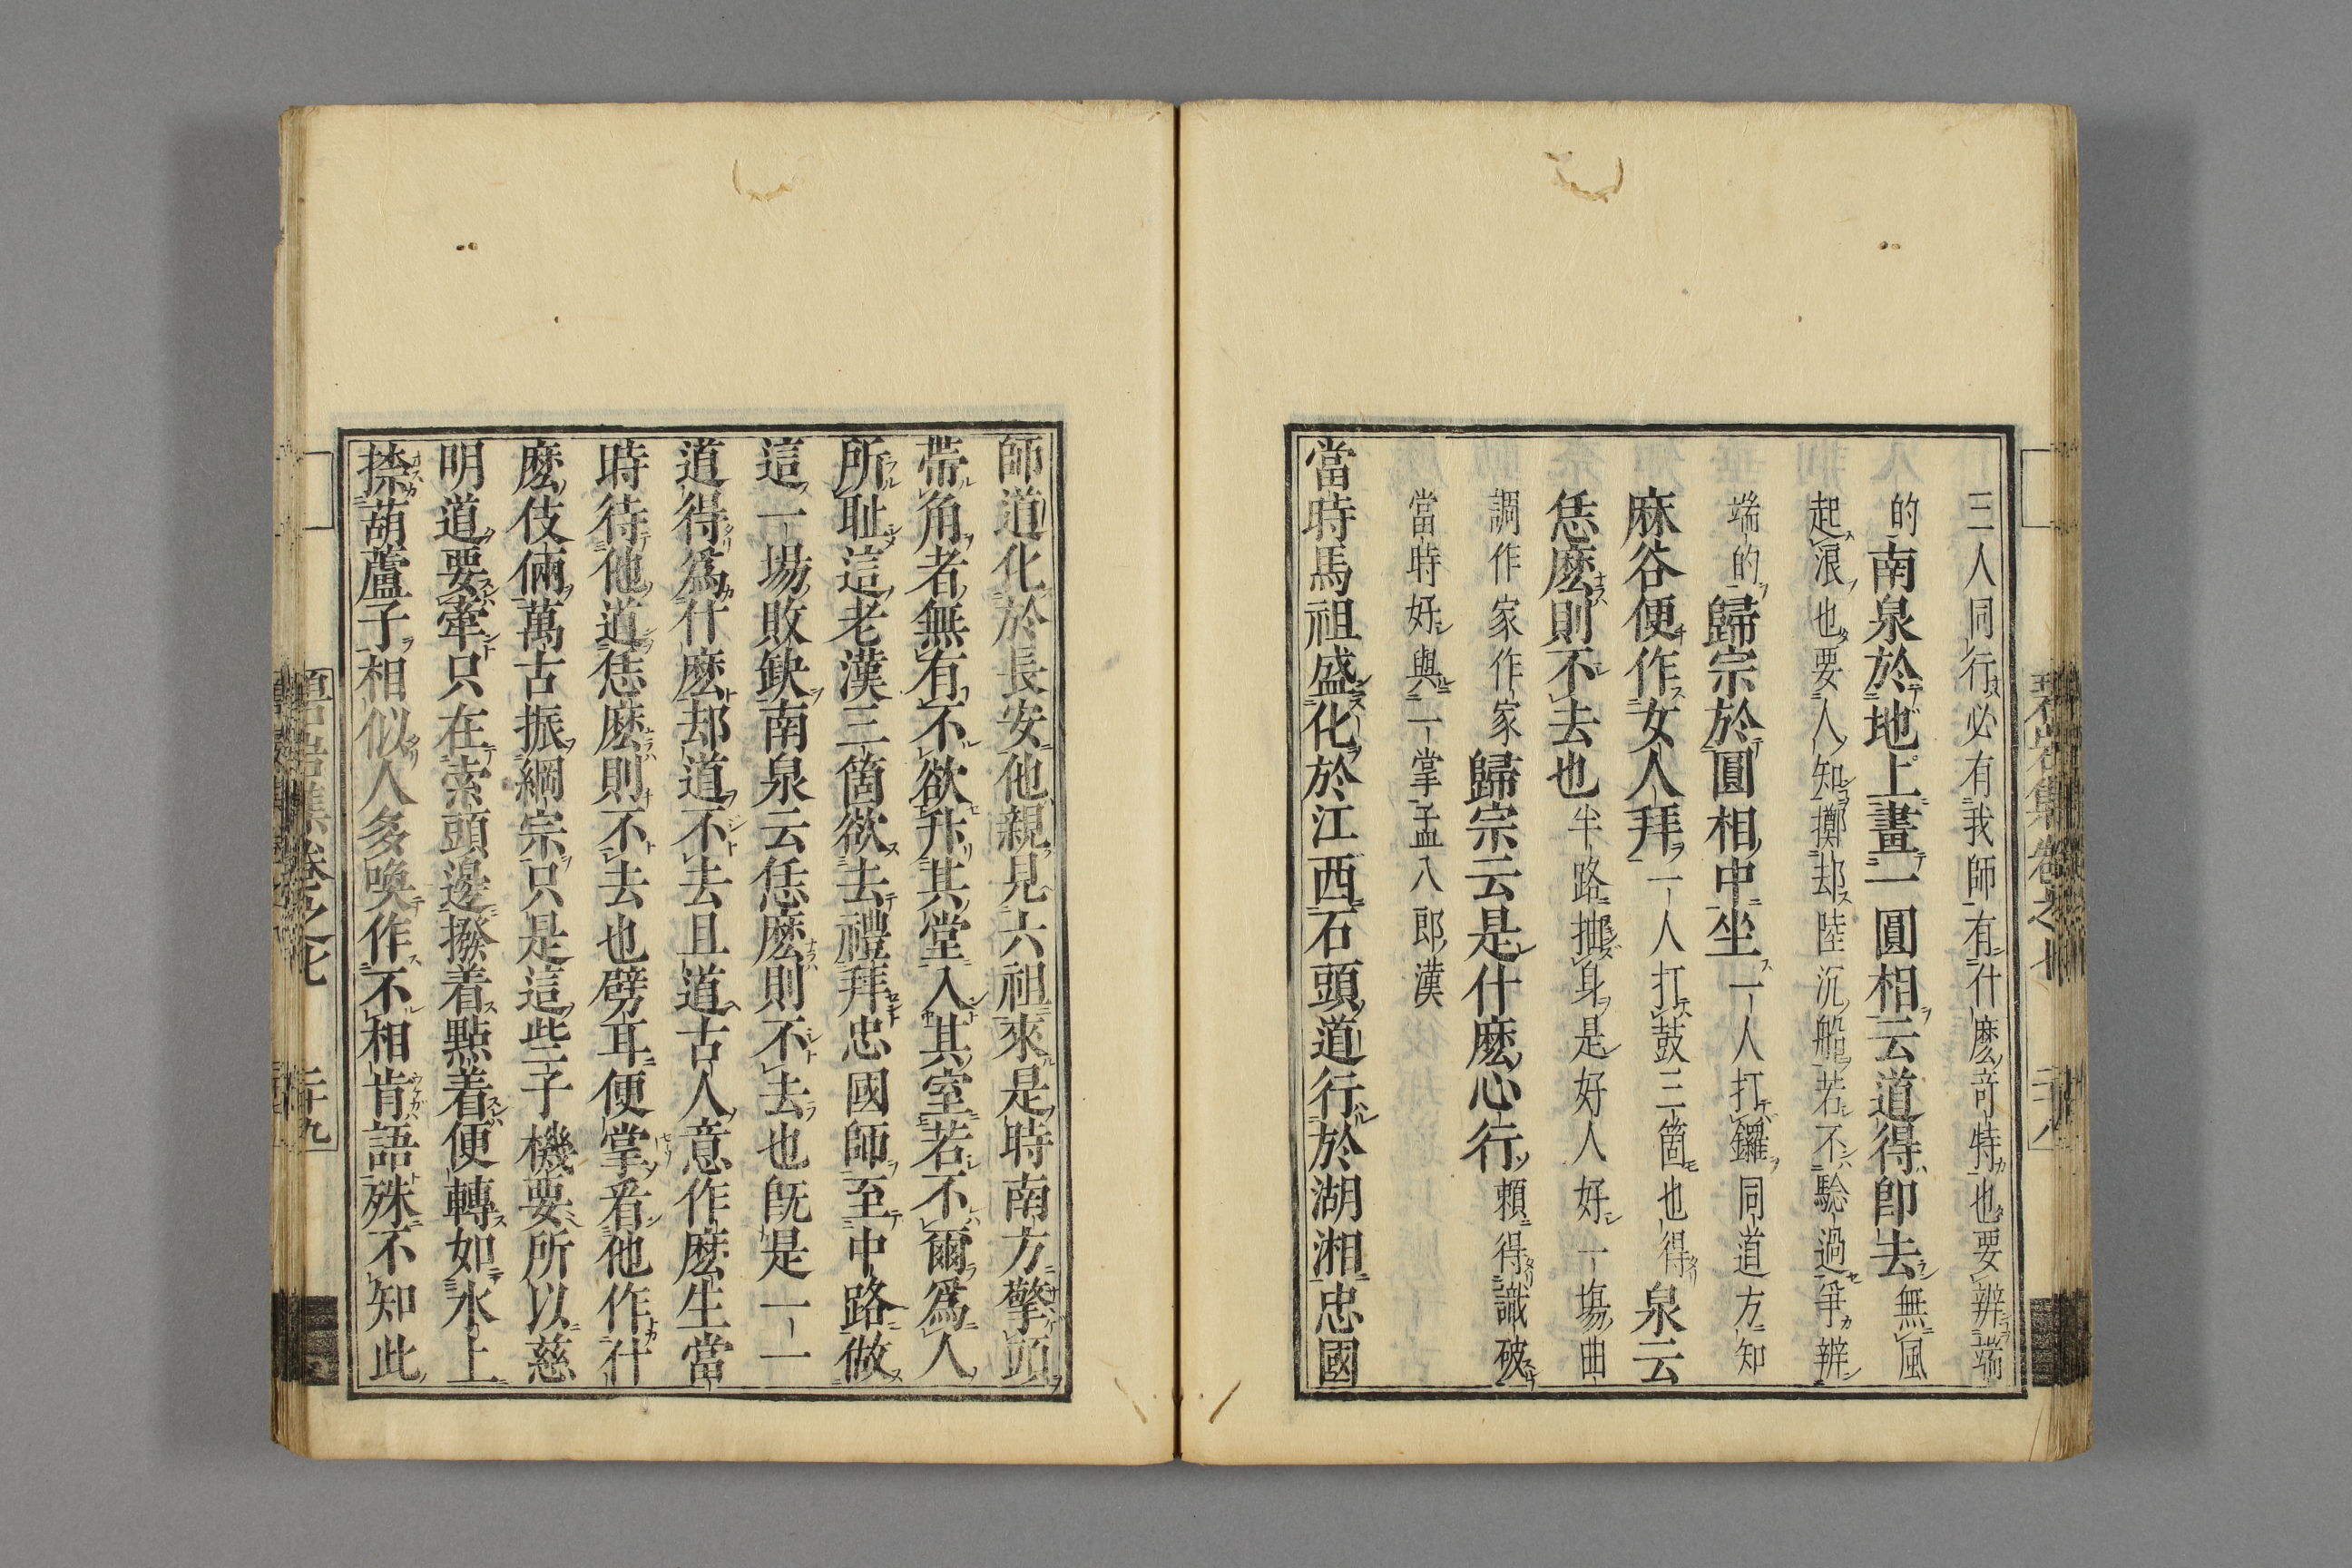 三人同行必有我師有什麼奇特也要辨端
的南泉於地上畫一圓相云道得即去無風
起浪也要人知擲却陸沉船若不驗過爭辨
端的歸宗於圓相中坐一人打鑼同道方知
麻谷便作女人拜一人打鼓三箇也得泉云
恁麼則不去也半路抽身是好人好一塲曲
調作家作家歸宗云是什麼心行賴得識破
當時好與一掌孟八郎漢
當時馬祖盛化於江西石頭道行於湖湘忠國
師道化於長安他親見六祖來是時南方擎頭
帶角者無有不欲升其堂入其室若不爾爲人
所耻這老漢三箇欲去禮拜忠國師至中路做
這一場敗缺南泉云恁麼則不去也既是一一
道得爲什麼却道不去且道古人意作麼生當
時待他道恁麼則不去也劈耳便掌看他作什
麼伎倆萬古振綱宗只是這些子機要所以慈
明道要牽只在索頭邊撥着點着便轉如水上
捺葫蘆子相似人多喚作不相肯語殊不知此